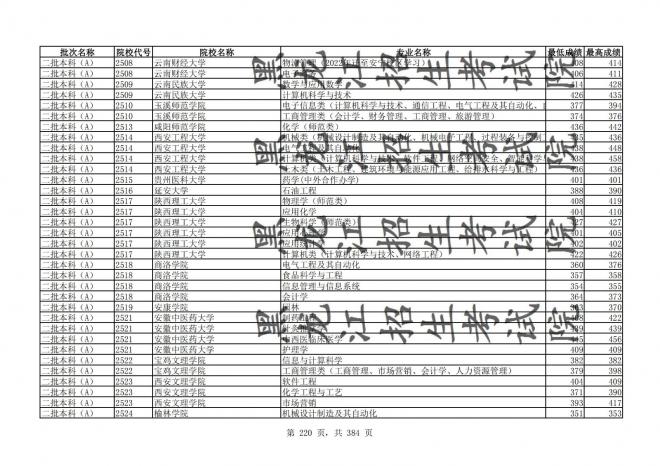 批次名称 院校代号 院校名称 专业名称 最低成绩 最高成绩
二批本科（A） 2508 云南财经大学 物流管理（2022年迁至安宁校区学习） 408 414
二批本科（A） 2508 云南财经大学 电子商务 406 411
二批本科（A） 2509 云南民族大学 数学与应用数学 414 428
二批本科（A） 2509 云南民族大学 计算机科学与技术 426 435
二批本科（A） 2510 玉溪师范学院 电子信息类（计算机科学与技术、通信工程、电气工程及其自动化、 377 394
二批本科（A） 2510 玉溪师范学院 工商管理类（会计学、财务管理、工商管理、旅游管理） 374 376
二批本科（A） 2513 咸阳师范学院 化学（师范类） 436 442
二批本科（A） 2514 西安工程大学 机械类（机械设计制造及其自动化、机械电子工程、过程装备与控制 436
二批本科（A） 2514 西安工程大学 电气工程及其自动化 438 448
二批本科（A） 2514 西安工程大学 计算机类（计算机科学与技术、软件工程、网络空间安全、智能科学 438 458
二批本科（A） 2514 西安工程大学 土木类（土木工程、建筑环境与能源应用工程、给排水科学与工程） 436
二批本科（A） 2515 贵州医科大学 药学(中外合作办学) 401 401
二批本科（A） 2516 延安大学 石油工程 388 390
二批本科（A） 2517 陕西理工大学 物理学（师范类） 408 419
二批本科（A） 2517 陕西理工大学 应用化学 404 410
二批本科（A） 2517 陕西理工大学 生物科学（师范类） 427
二批本科（A） 2517 陕西理工大学 应用心理学 405
二批本科（A） 2517 陕西理工大学 应用统计学 402 402
二批本科（A） 2517 陕西理工大学 计算机类（计算机科学与技术、网络工程） 422 426
二批本科（A） 2518 商洛学院 电气工程及其自动化 360 376
二批本科（A） 2518 商洛学院 食品科学与工程 357 358
二批本科（A） 2518 商洛学院 信息管理与信息系统 354 355
二批本科（A） 2518 商洛学院 会计学 364 373
二批本科（A） 2519 安康学院 园林 370
二批本科（A） 2521 安徽中医药大学 制药工程 422
二批本科（A） 2521 安徽中医药大学 针灸推拿学 439
二批本科（A） 2521 安徽中医药大学 中西医临床医学 455
二批本科（A） 2521 安徽中医药大学 护理学 409 409
二批本科（A） 2522 宝鸡文理学院 信息与计算科学 382 382
二批本科（A） 2522 宝鸡文理学院 工商管理类（工商管理、市场营销、会计学、人力资源管理） 379 398
二批本科（A） 2523 西安文理学院 软件工程 404 409
二批本科（A） 2523 西安文理学院 化学工程与工艺 371 390
二批本科（A） 2523 西安文理学院 市场营销 393 417
二批本科（A） 2524 榆林学院 机械设计制造及其自动化 351 353
黑龙江招生考试院
黑龙江招生考试院
黑龙江招生考试院
第 220 页，共 384 页